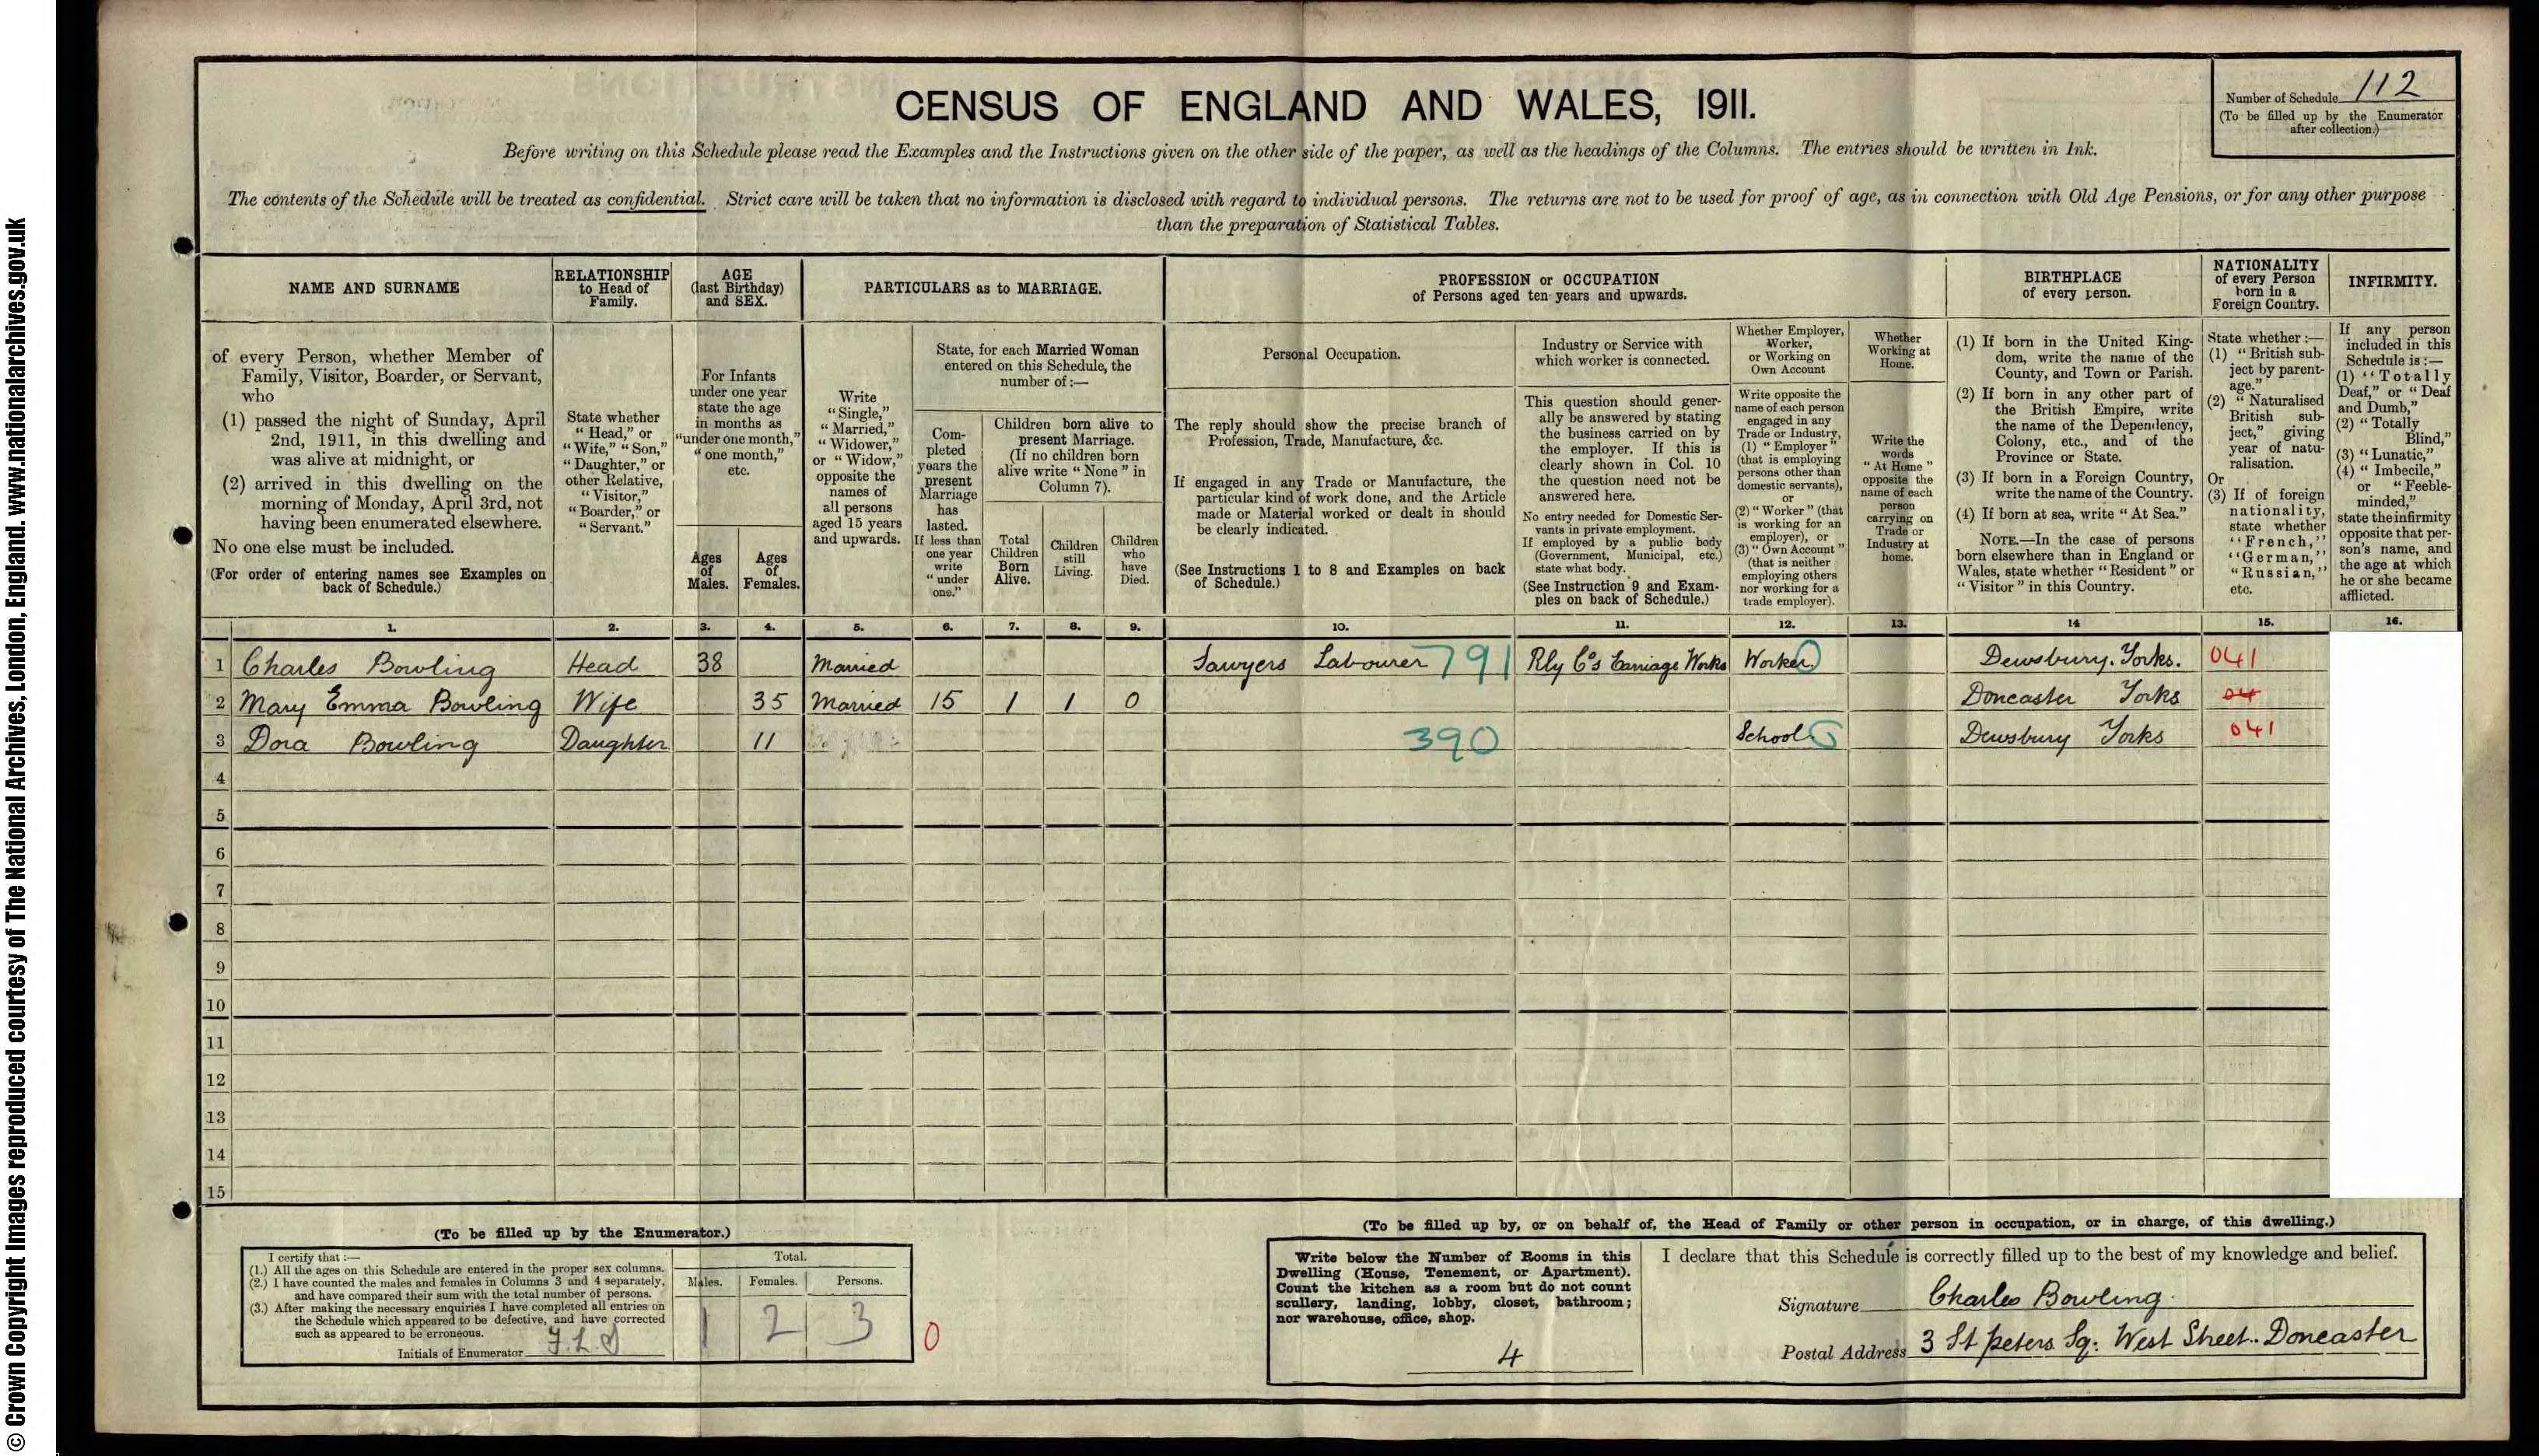 © Crown Copyright Images reproduced courtesy of The National Archives, London, England. www.nationalarchives.gov.uk
CENSUS OF ENGLAND AND WALES, 1911.
Number of Schedule 112
(To be filled up by the Enumerator
after collection.)
Before writing on this Schedule please read the Examples and the Instructions given on the other side of the paper, as well as the headings of the Columns. The entries should be written in Ink.
The contents of the Schedule will be treated as confidential. Strict care will be taken that no information is disclosed with regard to individual persons. The returns are not to be used for proof of age, as in connection with Old Age Pensions, or for any other purpose
than the preparation of Statistical Tables.
NAME AND SURNAME
of every Person, whether Member of
Family, Visitor, Boarder, or Servant,
who
(1) passed the night of Sunday, April
2nd, 1911, in this dwelling and
was alive at midnight, or
(2) arrived in this dwelling on the
morning of Monday, April 3rd, not
having been enumerated elsewhere.
No one else must be included.
(For order of entering names see Examples on
back of Schedule.)
RELATIONSHIP
to Head of
Family.
State whether
"Head," or
"Wife," "Son,"
"Daughter," or
other Relative,
"Visitor,"
"Boarder," or
"Servant."
AGE
(last Birthday)
and SEX.
For Infants
under one year
state the age
in months as
"under one month,"
"one month,"
etc.
Ages
of
Males.
Ages
of
Females.
PARTICULARS as to MARRIAGE.
Write
"Single,"
"Married,"
"Widower,"
or "Widow,"
opposite the
names of
all persons
aged 15 years
and upwards.
State, for each Married Woman
entered on this Schedule, the
number of:—
Com-
pleted
years the
present
Marriage
has
lasted.
If less than
one year
write
"under
one."
Children born alive to
present Marriage.
(If no children born
alive write "None" in
Column 7).
Total
Children
Born
Alive.
Children
still
Living.
Children
who
have
Died.
PROFESSION or OCCUPATION
of Persons aged ten years and upwards.
Personal Occupation.
The reply should show the precise branch of
Profession, Trade, Manufacture, &c.
If engaged in any Trade or Manufacture, the
particular kind of work done, and the Article
made or Material worked or dealt in should
be clearly indicated.
(See Instructions 1 to 8 and Examples on back
of Schedule.)
Industry or Service with
which worker is connected.
This question should gener-
ally be answered by stating
the business carried on by
the employer. If this is
clearly shown in Col. 10
the question need not be
answered here.
No entry needed for Domestic Ser-
vants in private employment.
If employed by a public body
(Government, Municipal, etc.)
state what body.
(See Instruction 9 and Exam-
ples on back of Schedule.)
Whether Employer,
Worker,
or Working on
Own Account
Write opposite the
name of each person
engaged in any
Trade or Industry,
(1) "Employer"
(that is employing
persons other than
domestic servants),
or
(2) "Worker" (that
is working for an
employer), or
(3) "Own Account"
(that is neither
employing others
nor working for a
trade employer).
Whether
Working at
Home.
Write the
words
"At Home"
opposite the
name of each
person
carrying on
Trade or
Industry at
home.
BIRTHPLACE
of every person.
(1) If born in the United King-
dom, write the name of the
County, and Town or Parish.
(2) If born in any other part of
the British Empire, write
the name of the Dependency,
Colony, etc., and of the
Province or State.
(3) If born in a Foreign Country,
write the name of the Country.
(4) If born at sea, write "At Sea."
NOTE.—In the case of persons
born elsewhere than in England or
Wales, state whether "Resident" or
"Visitor" in this Country.
NATIONALITY
of every Person
born in a
Foreign Country.
State whether:—
(1) "British sub-
ject by parent-
age."
(2) "Naturalised
British sub-
ject," giving
year of natu-
ralisation.
Or
(3) If of foreign
nationality,
state whether
"French,"
"German,"
"Russian,"
etc.
INFIRMITY.
If any person
included in this
Schedule is:—
(1) "Totally
Deaf," or "Deaf
and Dumb,"
(2) "Totally
Blind,"
(3) "Lunatic,"
(4) "Imbecile,"
or "Feeble-
minded,"
state the infirmity
opposite that per-
son's name, and
the age at which
he or she became
afflicted.
1. 2. 3. 4. 5. 6. 7. 8. 9. 10. 11. 12. 13. 14 15. 16.
1 Charles Bowling Head 38 Married Sawyers Labourer 791 Rly Co's Carriage Works Worker Dewsbury. Yorks. 041
2 Mary Emma Bowling Wife 35 Married 15 1 1 0 Doncaster Yorks 04
3 Dora Bowling Daughter 11 390 School Dewsbury Yorks 041
4
5
6
7
8
9
10
11
12
13
14
15
(To be filled up by the Enumerator.)
I certify that:—
(1.) All the ages on this Schedule are entered in the proper sex columns.
(2.) I have counted the males and females in Columns 3 and 4 separately,
and have compared their sum with the total number of persons.
(3.) After making the necessary enquiries I have completed all entries on
the Schedule which appeared to be defective, and have corrected
such as appeared to be erroneous.
Initials of Enumerator
Total.
Males. Females. Persons.
1 2 3 0
(To be filled up by, or on behalf of, the Head of Family or other person in occupation, or in charge, of this dwelling.)
Write below the Number of Rooms in this
Dwelling (House, Tenement, or Apartment).
Count the kitchen as a room but do not count
scullery, landing, lobby, closet, bathroom;
nor warehouse, office, shop.
4
I declare that this Schedule is correctly filled up to the best of my knowledge and belief.
Signature Charles Bowling.
Postal Address 3 St peters Sq: West Street. Doncaster